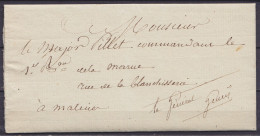 Monsieur
le Major Pillet commandant le
de la marne
rue de la Blanchisserie
à malines
le général